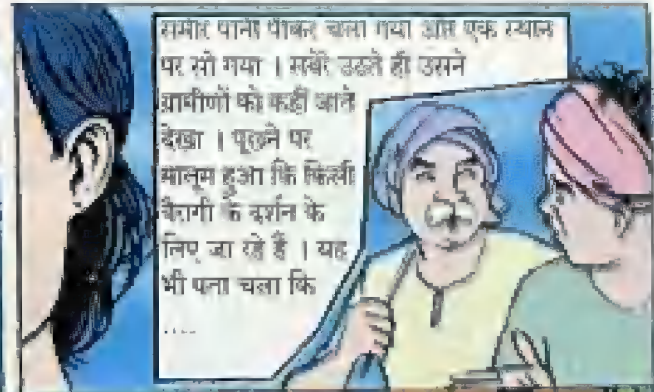 समीर पानी पीकर चला गया और एक स्थान
पर सो गया । सबेरे उठते ही उसने
ग्रामीणों को कहीं जाते
देखा । पूछने पर
मालूम हुआ कि किसी
बैरागी के दर्शन के
लिए जा रहे हैं । यह
भी पता चला कि
....